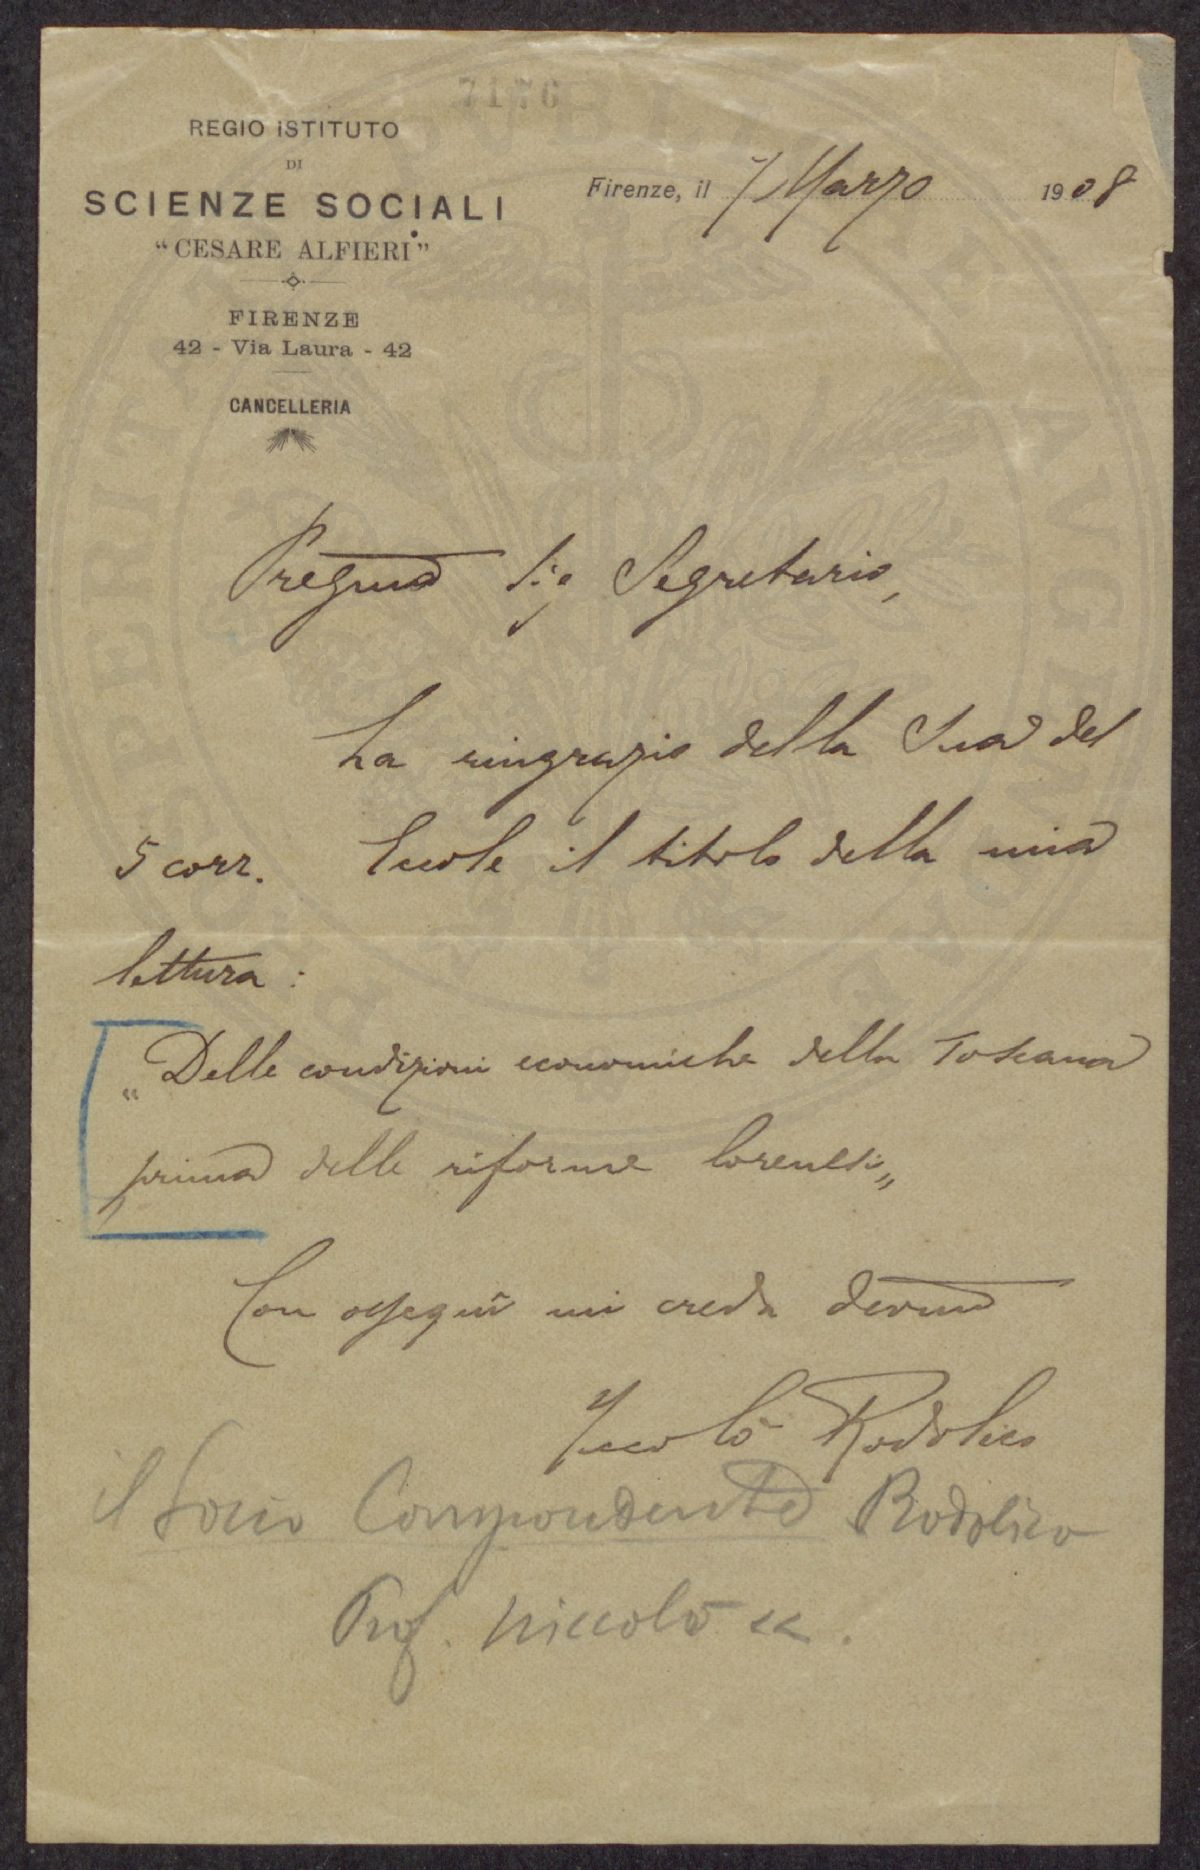 7176
REGIO ISTITUTO
DI
SCIENZE SOCIALI
“CESARE ALFIERI”
FIRENZE
42 - Via Laura - 42
CANCELLERIA
Firenze, il 7 Marzo 1908
Pregmo Sig Segretario,
La ringrazio della Sua del
5 corr. Eccole il titolo della mia
lettura:
"Delle condizioni economiche della Toscana
prima delle riforme lorenesi"
Con ossequi mi creda devmo
Niccolò Rodolico
il Socio Corrispondente Rodolico
Prof. Niccolò